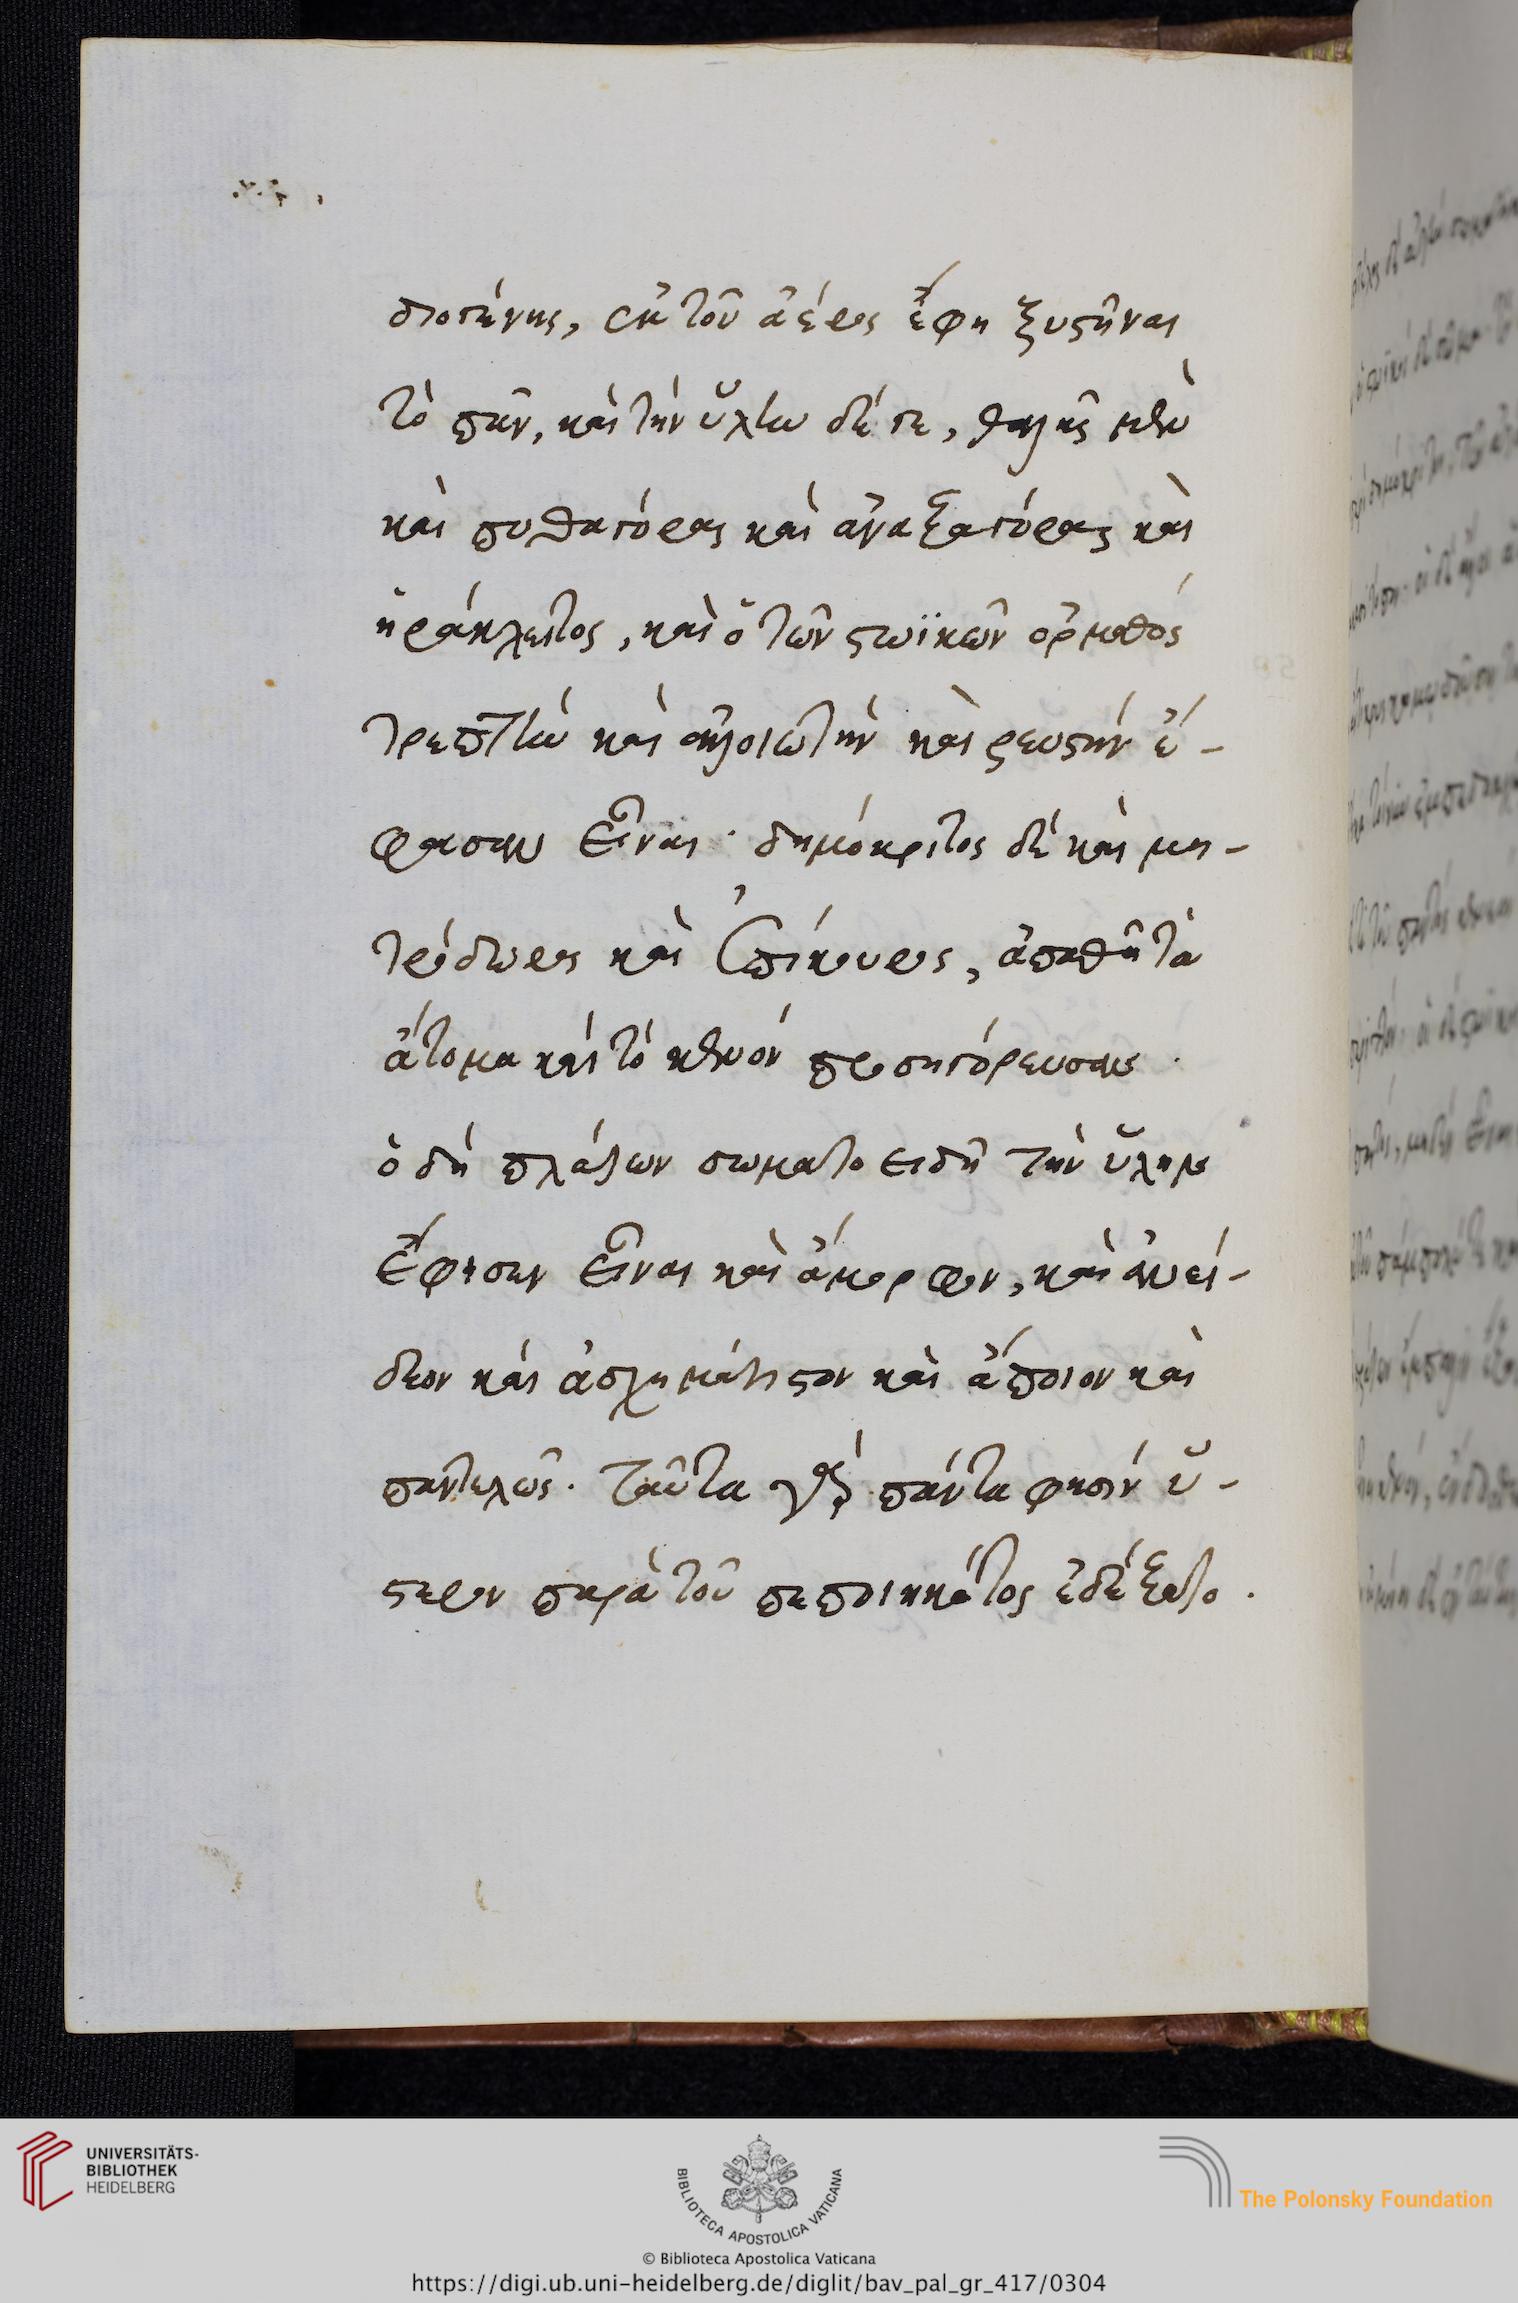 διογένης, ἐκ τοῦ ἀέρος ἔφη ξυστῆναι
τὸ πᾶν, καὶ τὴν ὕλην δέ γε, θαλῆς μὲν
καὶ πυθαγόρας καὶ ἀναξαγόρας καὶ
ἡράκλειτος, καὶ ὁ τῶν στωϊκῶν ὁρμαθός
τρεπτὴν καὶ ἀλλοιωτὴν καὶ ρευστὴν ἔ-
φασαν εἶναι· δημόκριτος δὲ καὶ μη-
τρόδωρος καὶ ἐπίκουρος, ἀπαθῆ τὰ
ἄτομα καὶ τὸ κενόν προσηγόρευσαν.
ὁ δὴ πλάτων σωματοειδῆ τὴν ὕλην
ἔφησεν εἶναι καὶ ἄμορφον, καὶ ἀνεί-
δεον καὶ ἀσχημάτιστον καὶ ἄποιον καὶ
παντελῶς. ταῦτα γὰρ πάντα φησὶν ὕ-
στερον παρὰ τοῦ πεποιηκότος ἐδέξατο.
UNIVERSITÄTS-
BIBLIOTHEK
HEIDELBERG
BIBLIOTECA APOSTOLICA VATICANA
The Polonsky Foundation
© Biblioteca Apostolica Vaticana
https://digi.ub.uni-heidelberg.de/diglit/bav_pal_gr_417/0304